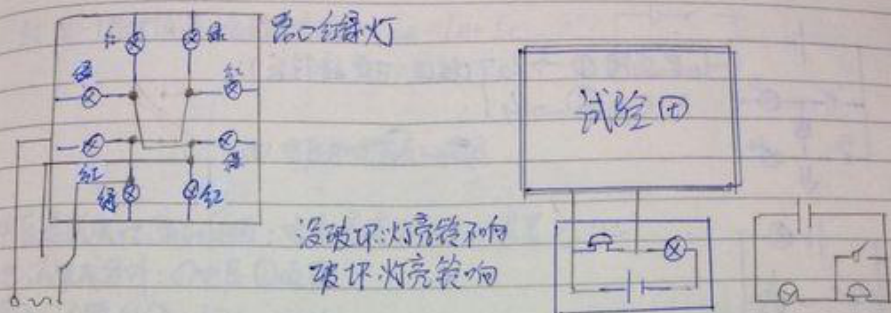 路口红绿灯
红 绿
绿 红
红 绿
绿 红
试验田
没破坏灯亮铃不响
破坏灯亮铃响